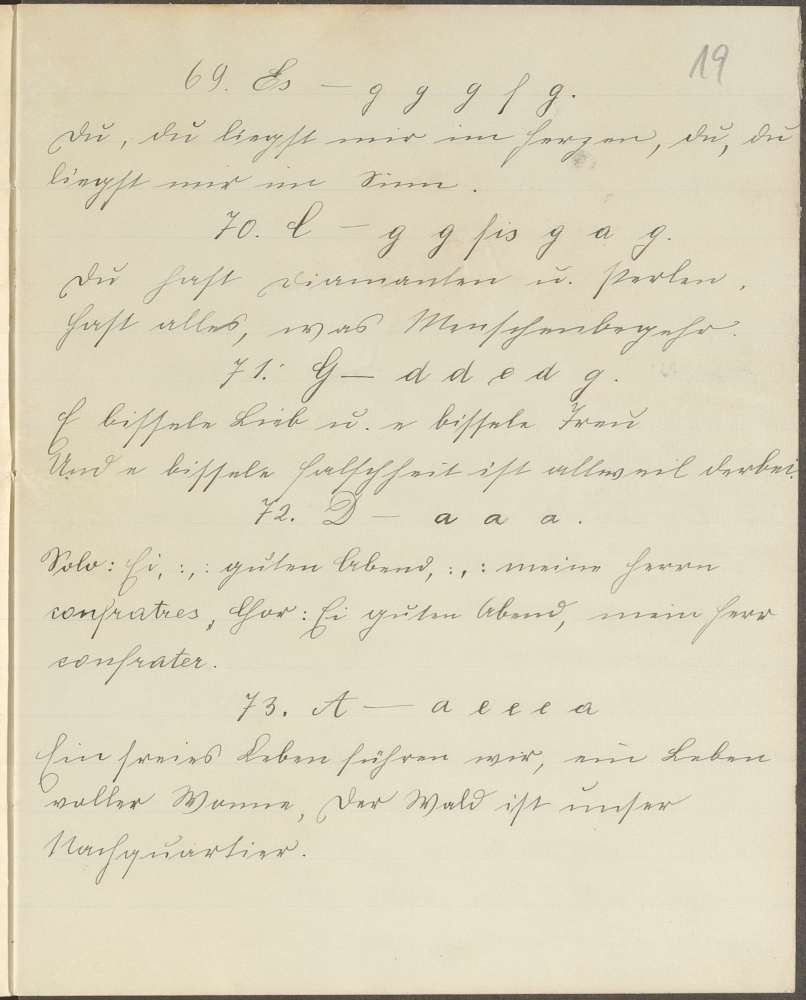 19
69. Es — g g g f g.
Du, du liegst mir im Herzen, du, du
liegst mir im Sinn.
70. C — g g fis g a g.
Du hast Diamanten u. Perlen,
hast alles, was Menschenbegehr.
71. G — d d e d g.
E bissele Lieb u. e bissele Treu
Und e bissele Falschheit ist allweil derbei.
72. D — a a a.
Solo: Ei, :,: guten Abend, :,: meine Herrn
confratres, Chor: Ei guten Abend, mein Herr
confrater.
73. A — a e e e a
Ein freies Leben führen wir, ein Leben
voller Wonne, Der Wald ist unser
Nachquartier.